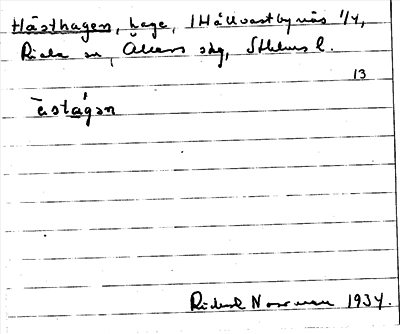 Hästhagen, hage, i Hållvastbynäs 1/4,
Riala sn, Åkers sdg, Sthlms l.
13
ästágən
Rickard Norrman 1934.